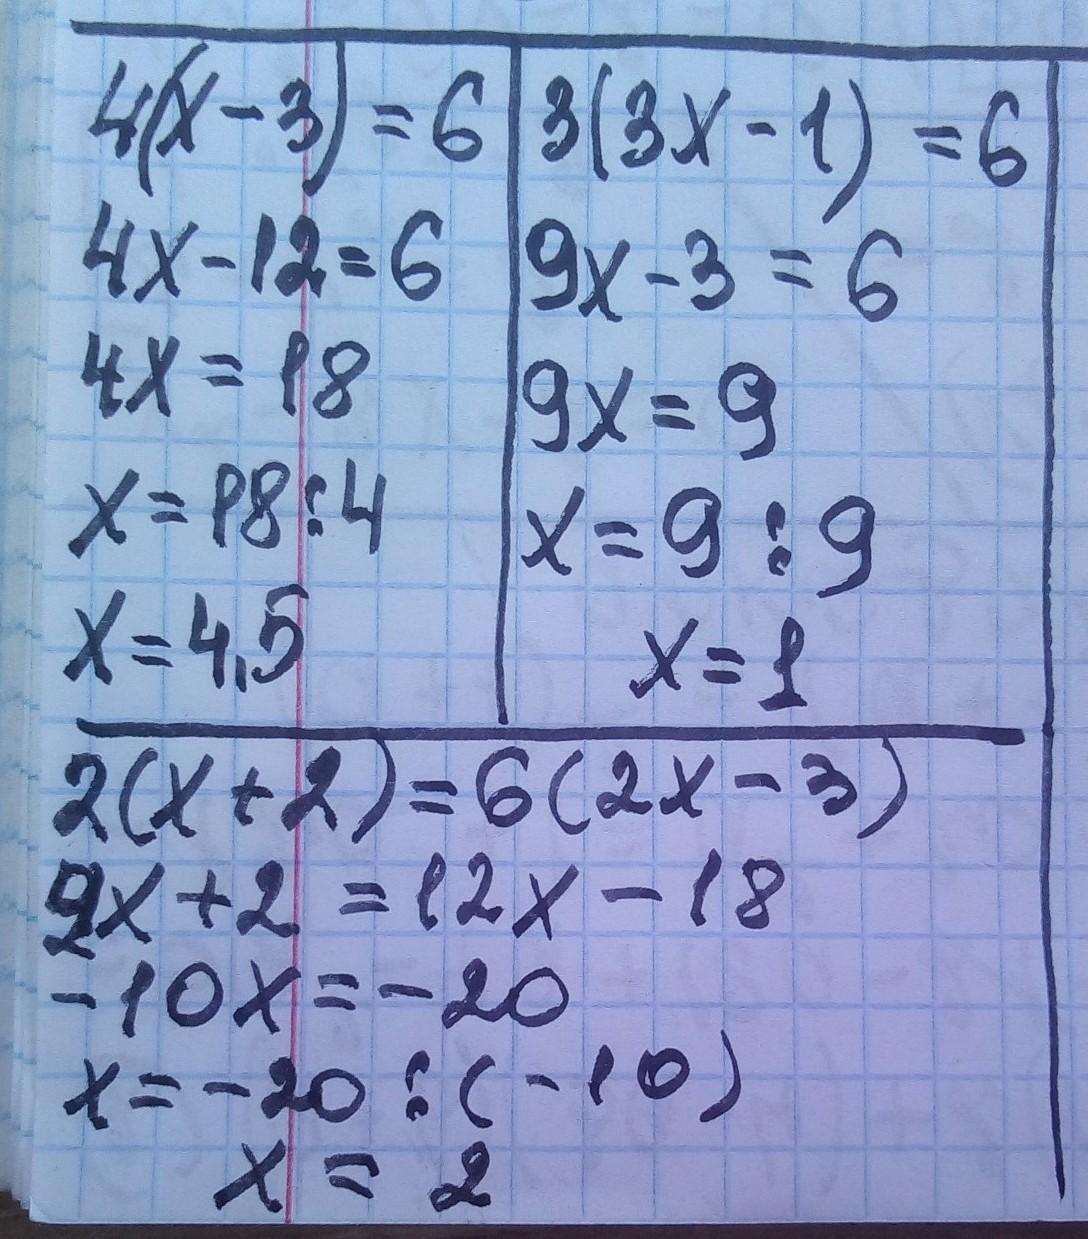 4(x-3)=6
4x-12=6
4x=18
x=18:4
x=4,5
3(3x-1)=6
9x-3=6
9x=9
x=9:9
x=1
2(x+2)=6(2x-3)
2x+2=12x-18
-10x=-20
x=-20:(-10)
x=2